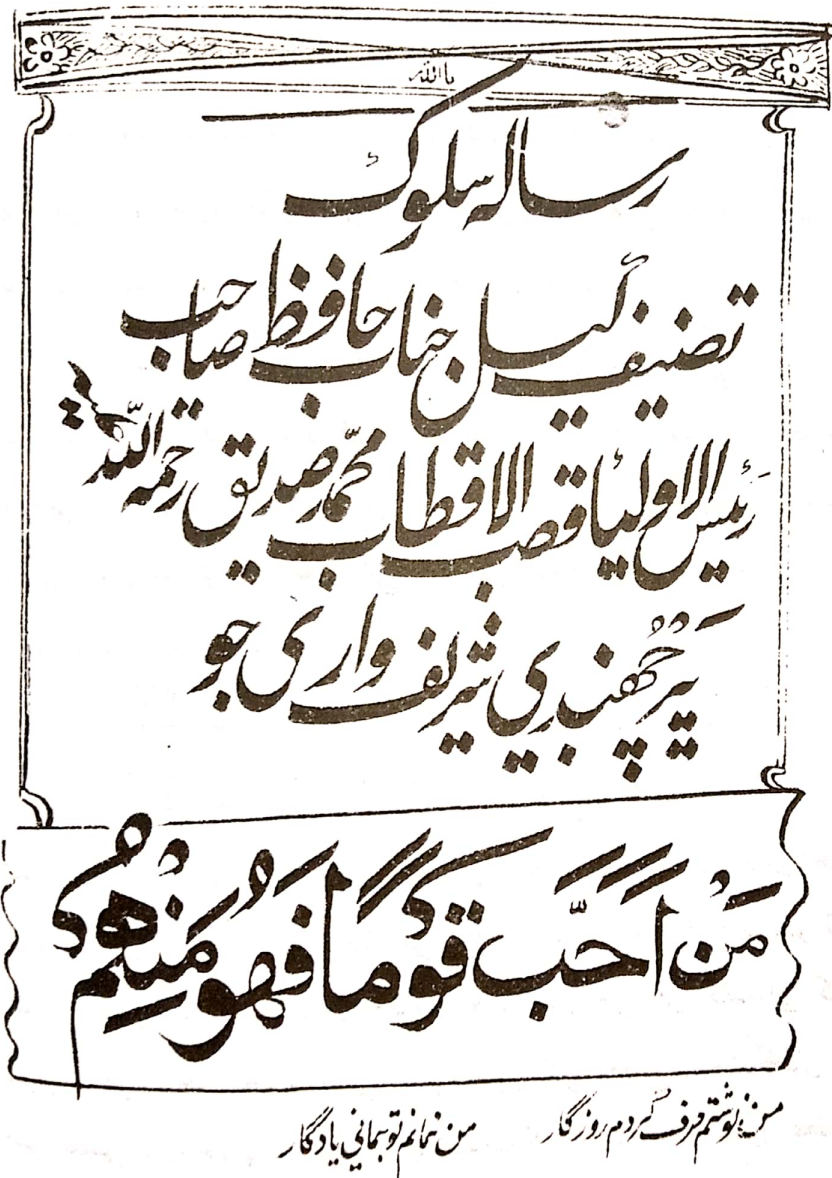 ياالله
رساله سلوک
تصنيف ڪيل جناب حافظ صاحب
رئيس الاولياء قصب الاقطاب محمد صديق رحمة الله عليه
پير جھنڊي شريف واري جو
مَنْ اَحَبَّ قَوْمًا فَهُوَ مِنْهُمْ
من نوشتم صرف کردم روزگار من نمانم تو بماني يادگار